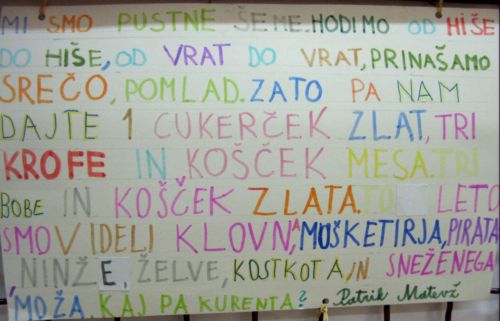 MI SMO PUSTNE ŠEME. HODIMO OD HIŠE
DO HIŠE, OD VRAT DO VRAT, PRINAŠAMO
SREČO, POMLAD. ZATO PA NAM
DAJTE 1 CUKERČEK ZLAT, TRI
KROFE IN KOŠČEK MESA. TRI
BOBE IN KOŠČEK ZLATA. TO LETO
SMO VIDELI KLOVNA, MUŠKETIRJA, PIRATA
NINŽE, ŽELVE, KOSTKOTA, IN SNEŽENEGA
MOŽA. KAJ PA KURENTA? Patrik Matevž